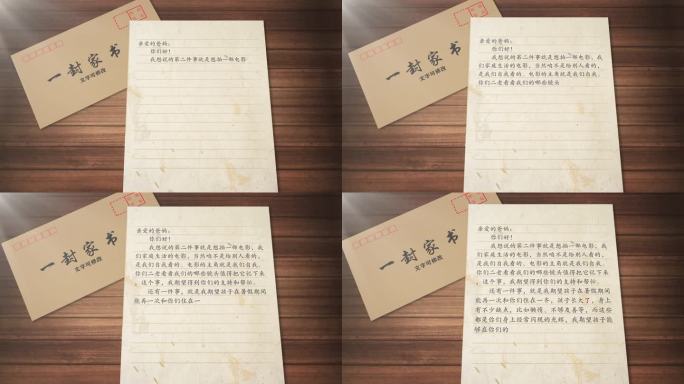 一封家书
文字可修改
亲爱的爸妈：
你们好！
我想说的第二件事就是想拍一部电影
一封家书
文字可修改
亲爱的爸妈：
你们好！
我想说的第二件事就是想拍一部电影，我
们家庭生活的电影，当然咱不是给别人看的，
是我们自我看的，电影的主角就是我们自我，
你们二老看看我们的哪些镜头
一封家书
文字可修改
亲爱的爸妈：
你们好！
我想说的第二件事就是想拍一部电影，我
们家庭生活的电影，当然咱不是给别人看的，
是我们自我看的，电影的主角就是我们自我，
你们二老看看我们的哪些镜头值得把它记下来
，这个事，我期望得到你们的支持和帮忙。
还有一件事，就是我期望孩子在暑假期间
能再一次和你们住在一
一封家书
文字可修改
亲爱的爸妈：
你们好！
我想说的第二件事就是想拍一部电影，我
们家庭生活的电影，当然咱不是给别人看的，
是我们自我看的，电影的主角就是我们自我，
你们二老看看我们的哪些镜头值得把它记下来
，这个事，我期望得到你们的支持和帮忙。
还有一件事，就是我期望孩子在暑假期间
能再一次和你们住在一齐，孩子长大了，身上
有不少缺点，比如懒惰、不够友善等，而这些
都是你们身上经常闪现的光辉，我期望孩子能
够在你们的